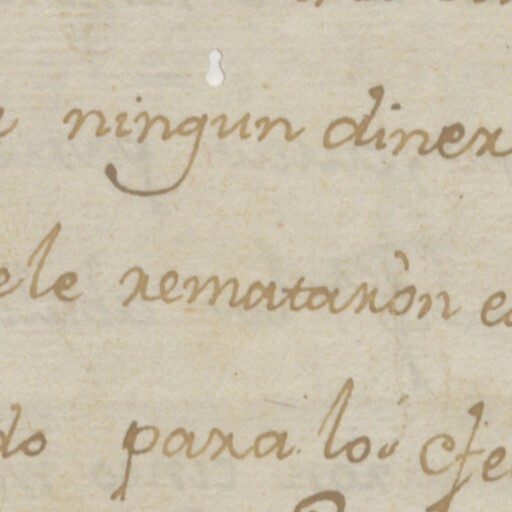 ningun diner
ele remataròn e
do para los efe